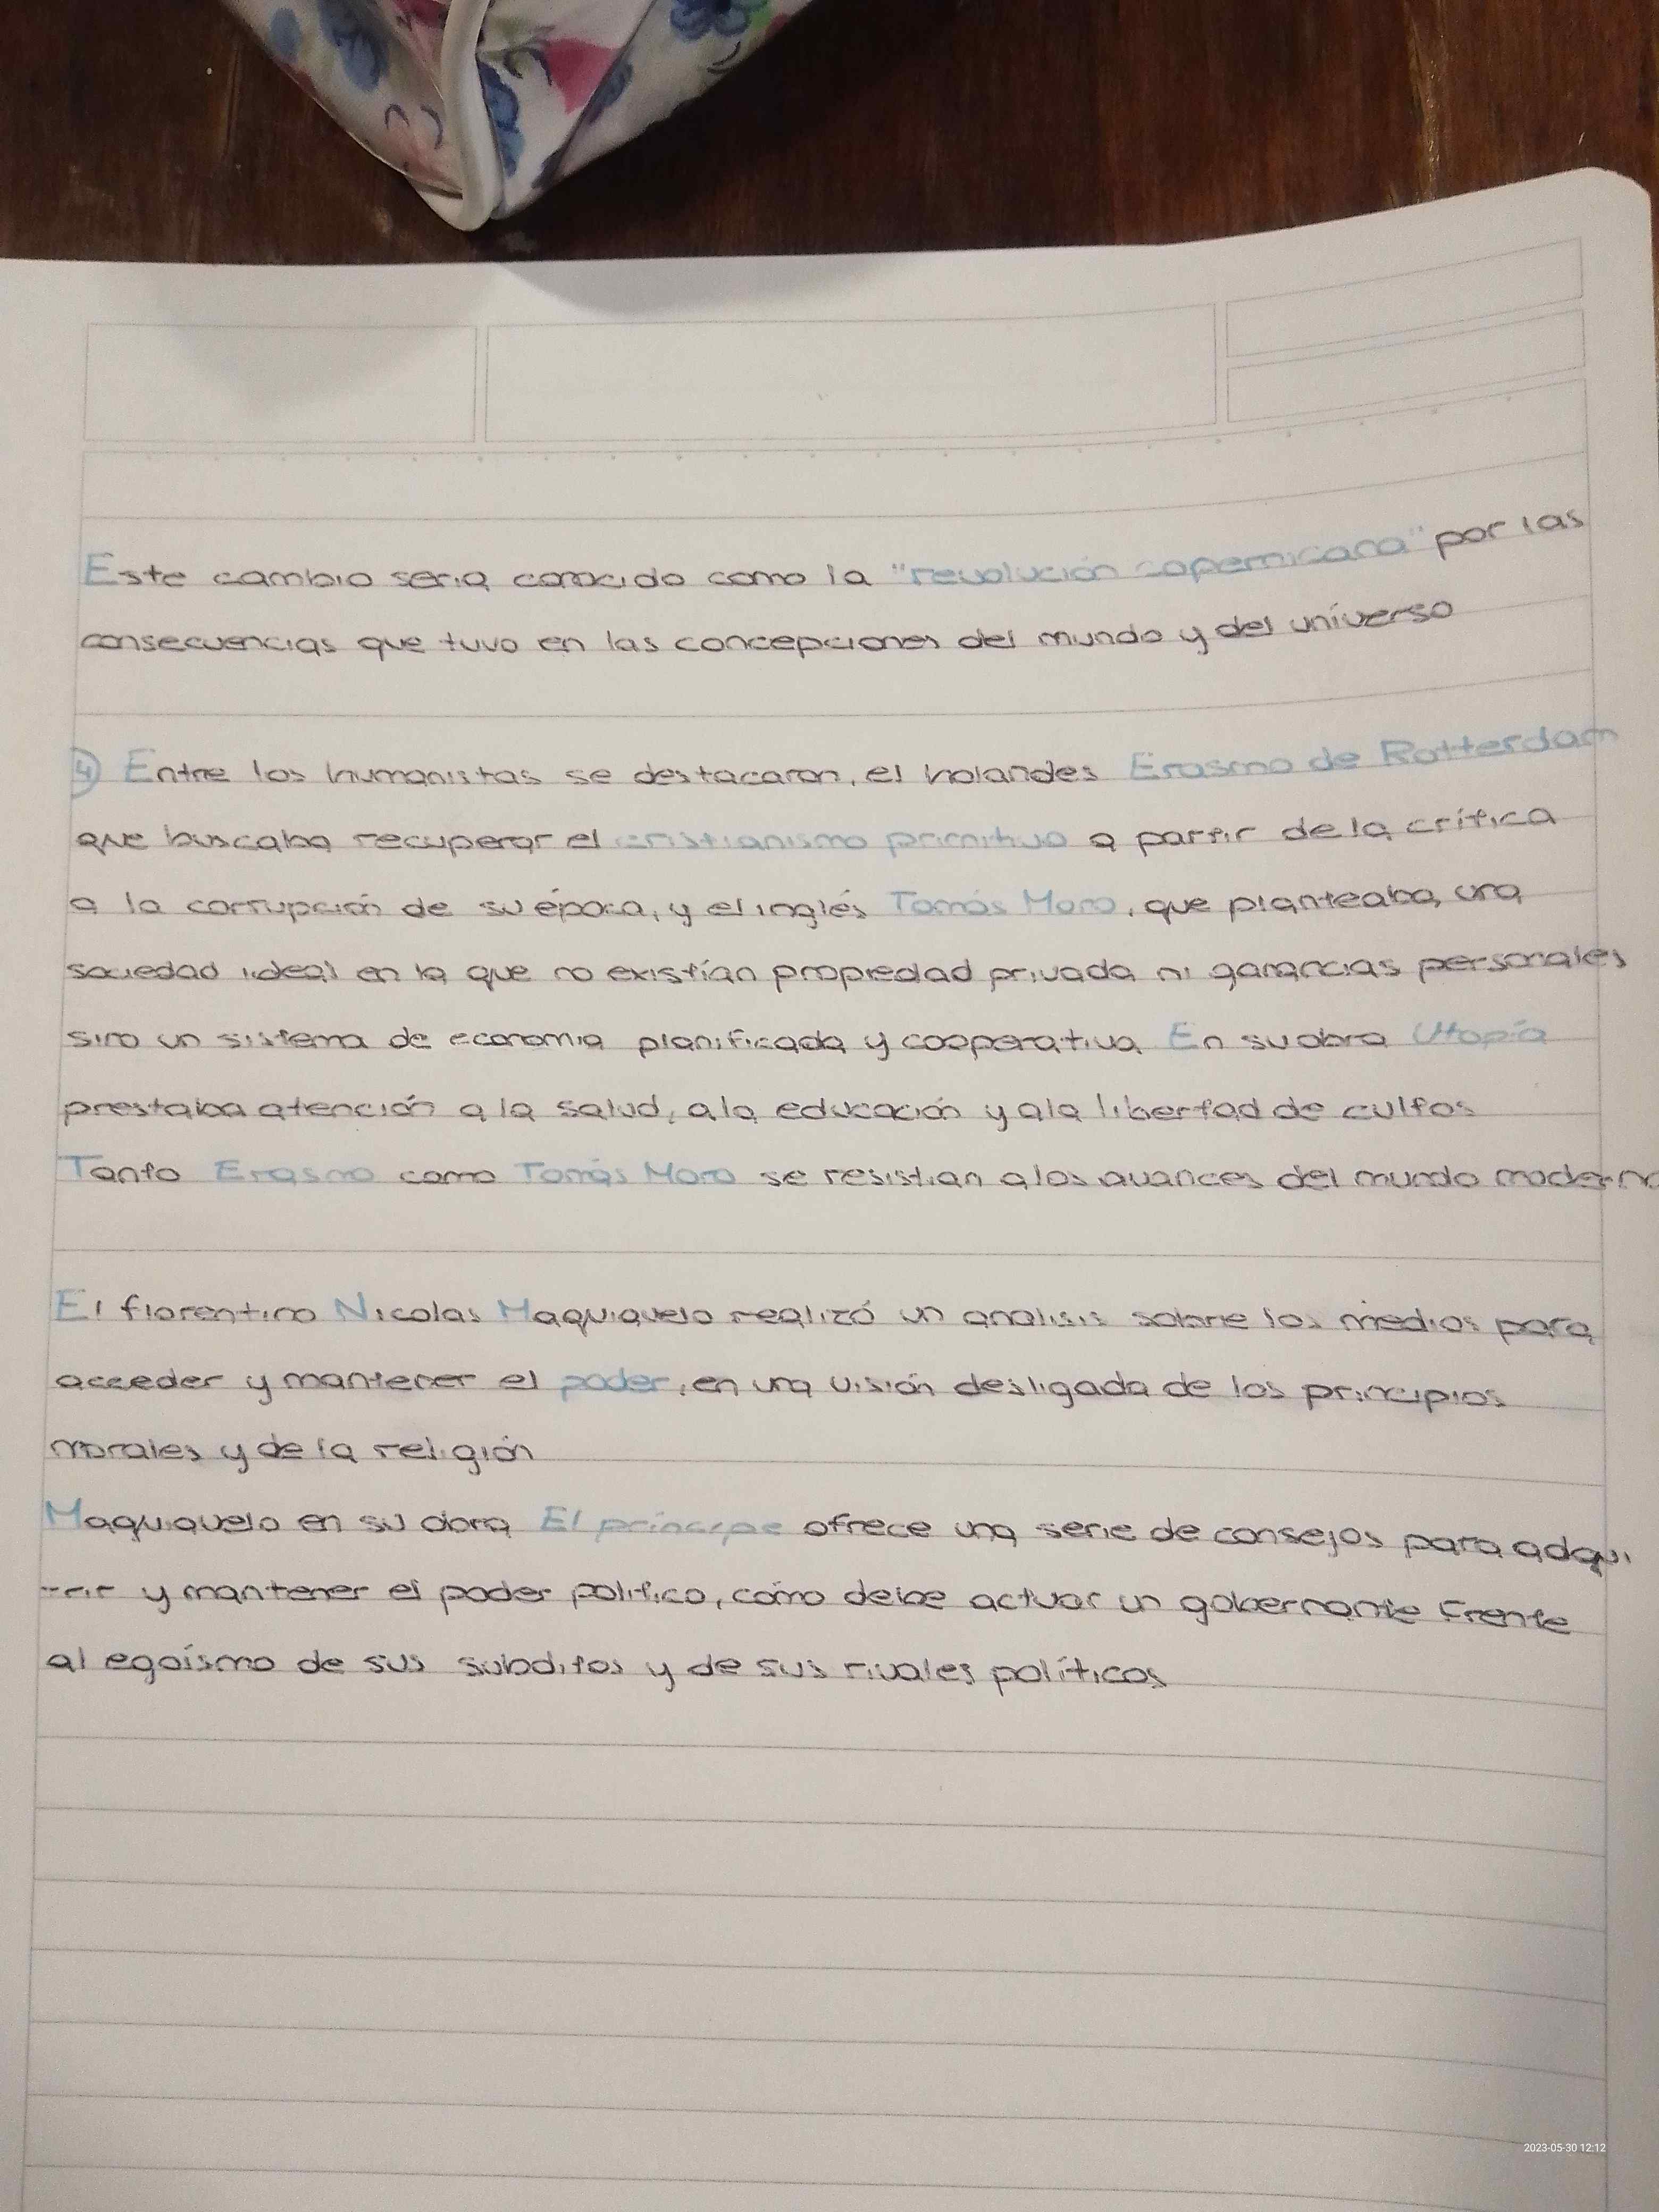 Este cambio seria conocido como la "revolución copernicana" por las
consecuencias que tuvo en las concepciones del mundo y del universo
4) Entre los humanistas se destacaron, el holandes Erasmo de Rotterdam
que buscaba recuperar el cristianismo primitivo a partir de la crítica
a la corrupción de su época, y el inglés Tomás Moro, que planteaba, una
sociedad ideal en la que no existían propiedad privada ni ganancias personales
sino un sistema de economia planificada y cooperativa En su obra Utopía
prestaba atención a la salud, a la educación y a la libertad de cultos
Tanto Erasmo como Tomás Moro se resistian a los avances del mundo moderno
El florentino Nicolas Maquiavelo realizó un analisis sobre los medios para
acceder y mantener el poder, en una visión desligada de los principios
morales y de la religión
Maquiavelo en su obra El príncipe ofrece una serie de consejos para adqui
-rir y mantener el poder politico, cómo debe actuar un gobernante frente
al egoísmo de sus subditos y de sus rivales políticos
2023-05-30 12:12